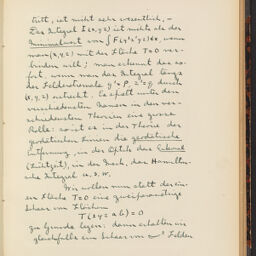 tritt, ist nicht sehr wesentlich, —
Das Integral I(x,y,z) ist nichts als der
Minimalwert von ∫F(y'z'yz)dx, wenn
man (x,y,z) mit der Fläche T=0 ver-
binden will; man erkennt das so-
fort, wenn man das Integral längs
der Feldextremale y'=p, z'=q durch
(x,y,z) erstreckt. Es spielt unter den
verschiedensten Namen in den ver-
schiedensten Theorien eine grosse
Rolle: so ist es in der Theorie der
geodätischen Linien die geodätische
Entfernung, in der Optik das Eikonal
(Lichtzeit), in der Mech. das Hamilton-
sche Integral u.s.w.
Wir wollen nun statt der ein-
en Fläche T=0 eine zweiparametrige
Schaar von Flächen
T(xyz a b)=0
zu Grunde legen: dann erhalten wir
gleichfalls eine Schaar von Felder